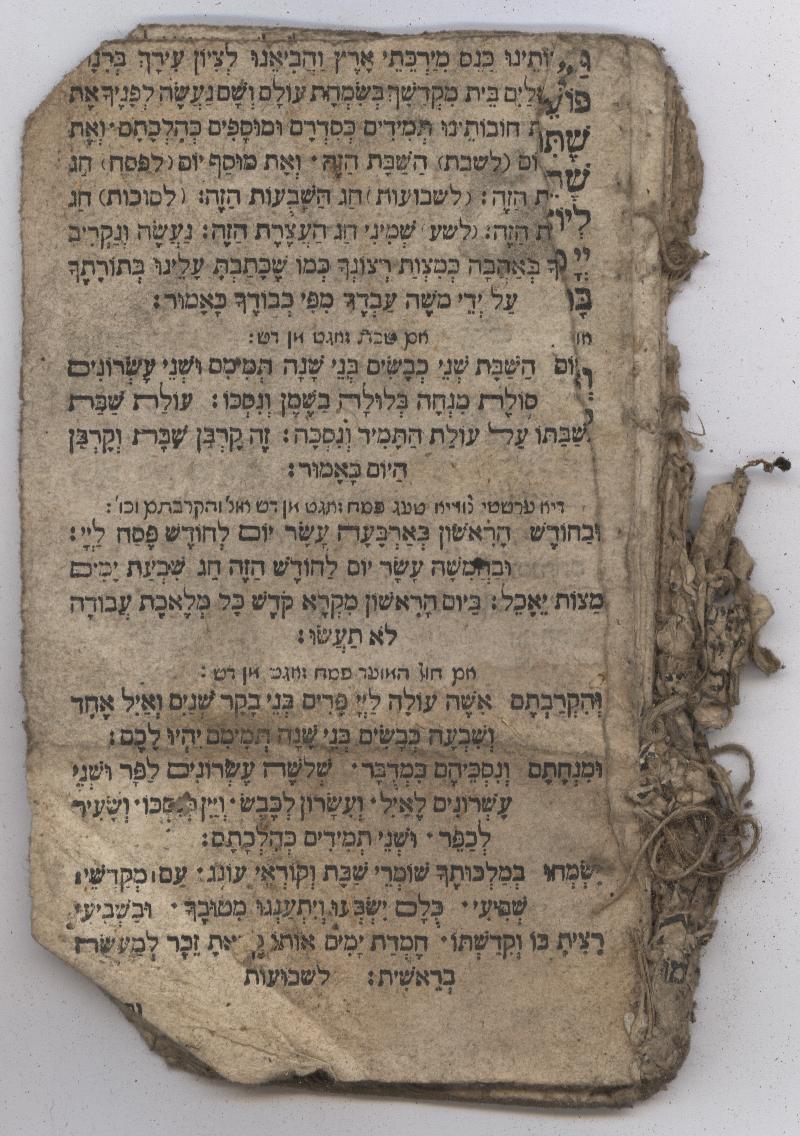 כנס מירכתי ארץ והביאנו לציון עירך
בית מקדשך בשמחת עולם ושם נעשה לפניך את
חובותינו תמידים כסדרם ומוספים כהלכתם· ואת
(לשבת) השבת הזה· ואת מוסף יום (לפסח) חג
הזה: (לשבועות) חג השבעות הזה: (לסוכות) חג
הזה: (לשע׳) שמיני חג העצרת הזה: נעשה ונקריב
באהבה כמצות רצונך כמו שכתבת עלינו בתורתך
על ידי משה עבדך מפי כבודך כאמור:
אם שבת זאגט אן דש:
השבת שני כבשים בני שנה תמימם ושני עשרונים
סולת מנחה בלולה בשמן ונסכו: עולת שבת
בשבתו על עולת התמיד ונסכה: זה קרבן שבת וקרבן
היום כאמור:
ובחודש הראשון בארבעה עשר יום לחודש פסח ליי׳:
ובחמשה עשר יום לחודש הזה חג שבעת ימים
מצות יאכל: ביום הראשון מקרא קדש כל מלאכת עבודה
לא תעשו:
אם חול המועד פסח זאגט אן דש:
והקרבתם אשה עולה ליי׳ פרים בני בקר שנים ואיל אחד
ושבעה כבשים בני שנה תמימם יהיו לכם:
ומנחתם ונסכיהם כמדבר· שלשה עשרונים לפר ושני
עשרונים לאיל· ועשרון לכבש· ויין כנסכו· ושעיר
לכפר· ושני תמידים כהלכתם:
ישמחו במלכותך שומרי שבת וקוראי עונג· עם מקדשי
שביעי· כלם ישבעו ויתענגו מטובך· ובשביעי
רצית בו וקדשתו· חמדת ימים אותו קראת זכר למעשה
בראשית: לשבועות